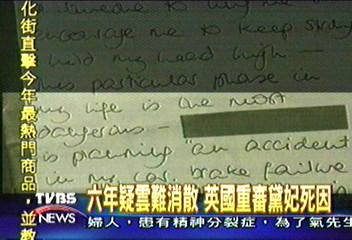 化街直擊今年最熱門商品，並教
someone to
encourage me to keep strong
hold my head high -
this particular phase in
my life is the most
dangerous -
is planning "an accident
car, brake failure
六年疑雲難消散 英國重審黛妃死因
TVBS
NEWS
婦人，患有精神分裂症，為了氣先生